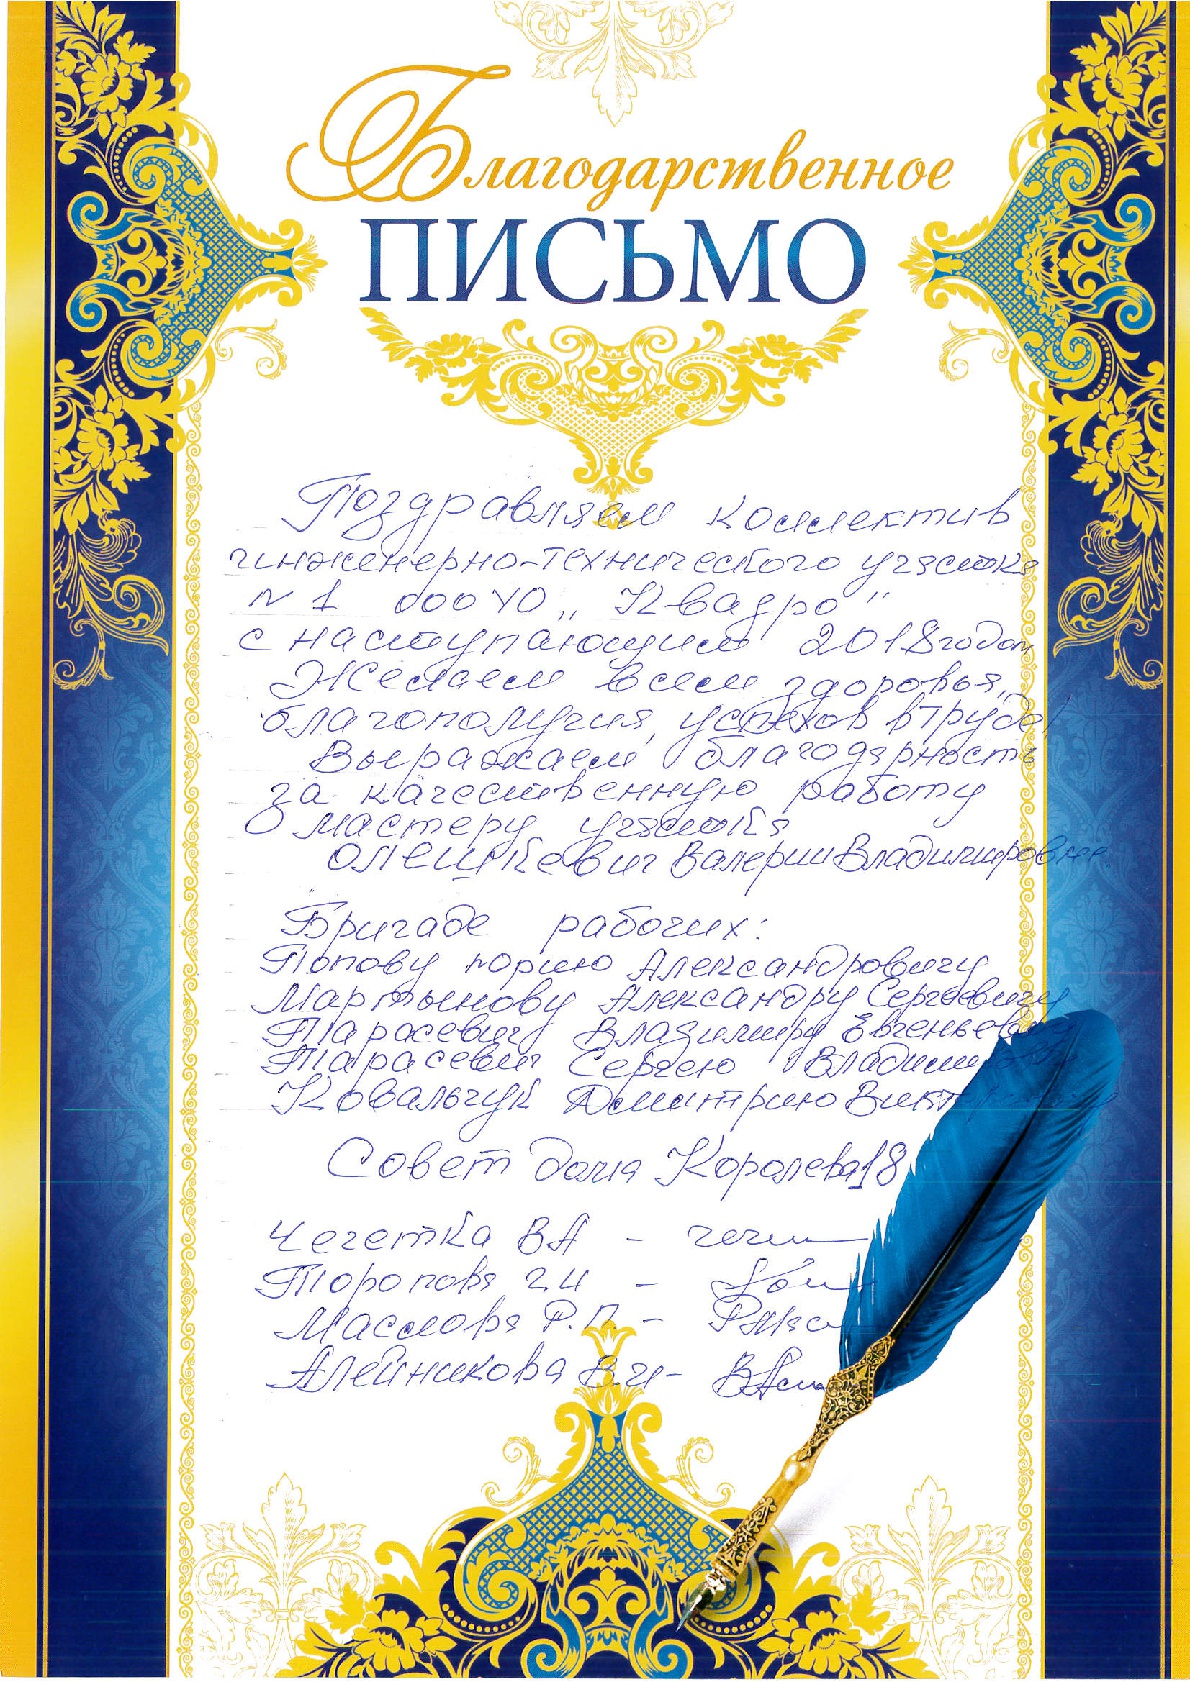 Благодарственное
ПИСЬМО
Поздравляем коллектив
инженерно-технического участка
№ 1 ООО УО „Квадро"
с наступающим 2018 годом
Желаем всем здоровья,
благополучия, успехов в труде!
Выражаем благодарность
за качественную работу
мастеру участка
Олешкевич Валерии Владимировне
Бригаде рабочих:
Попову Юрию Александровичу
Мартынову Александру Сергеевичу
Тарасевичу Владимиру Евгеньевичу
Тарасевич Сергею
Ковальчук Дмитрию
Совет дома Королева 18
Чечетка ВА –
Торопова Г.И –
Маслова Р.П. –
Алейникова В.И –